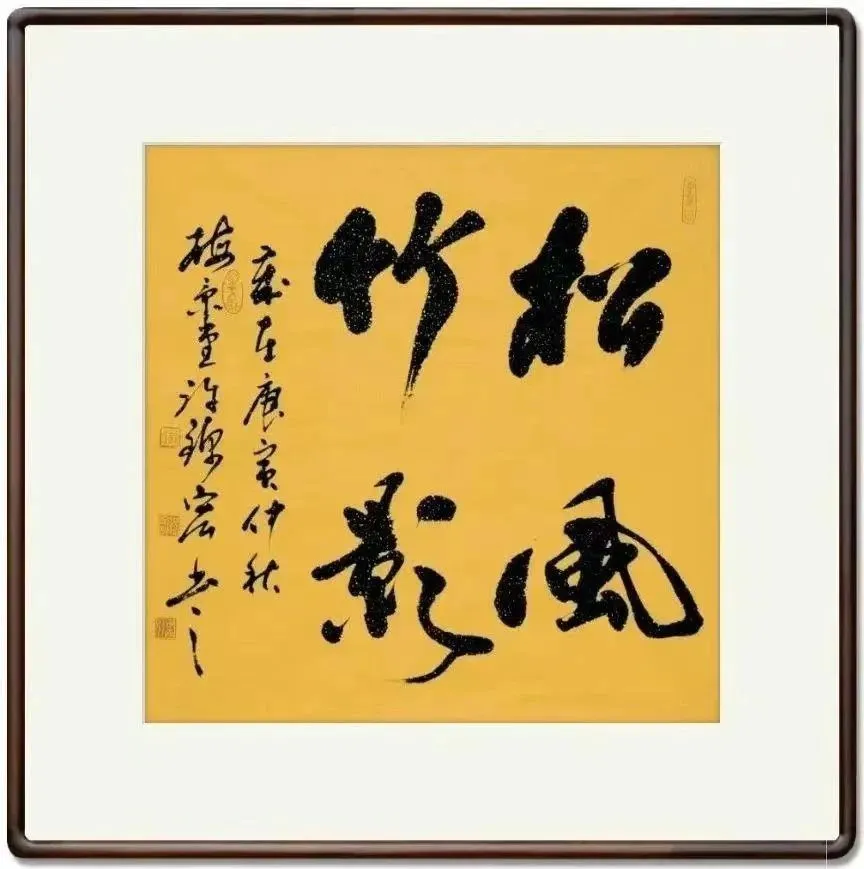 松風
竹影
歲在庚寅仲秋
梅堂許錦宏書之